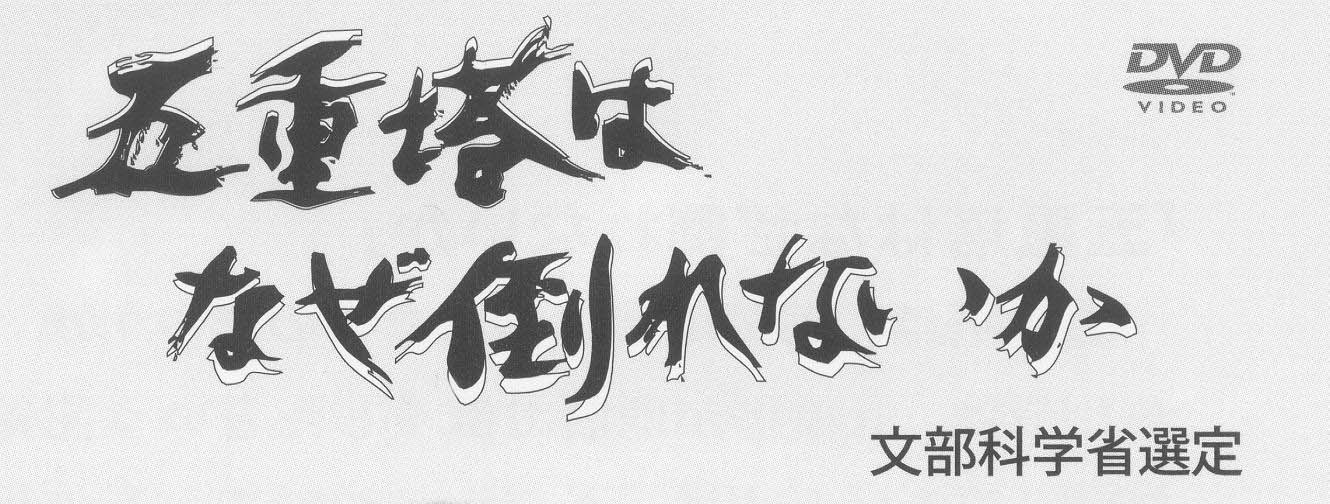 五重塔は
DVD
VIDEO
なぜ倒れないか
文部科学省選定